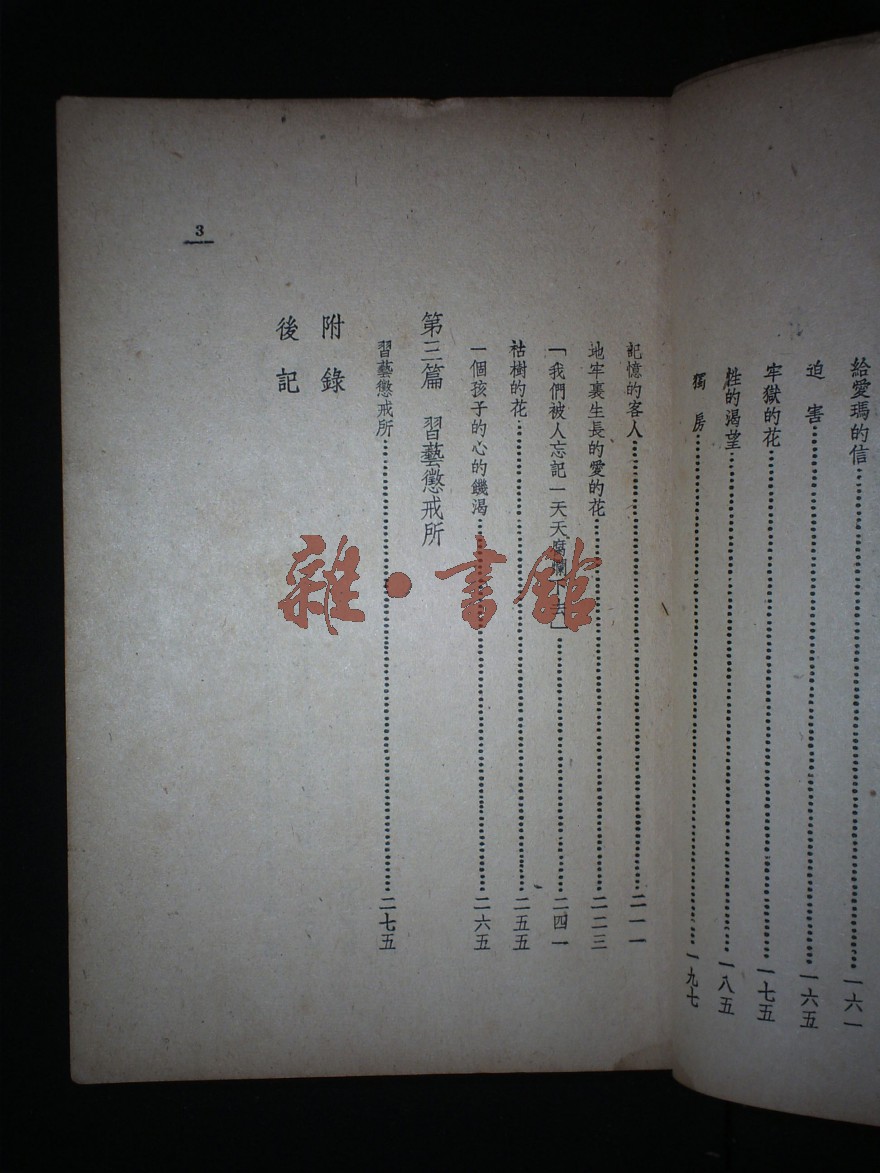 給愛瑪的信 一六一
迫害 一六五
牢獄的花 一七五
性的渴望 一八五
獨房 一九七
記憶的客人 二一一
地牢裏生長的愛的花 二二三
「我們被人忘記一天天腐爛下去」 二四一
枯樹的花 二五五
一個孩子的心的饑渴 二六五
第三篇 習藝懲戒所
習藝懲戒所 二七五
附錄
後記
3
雜·書館